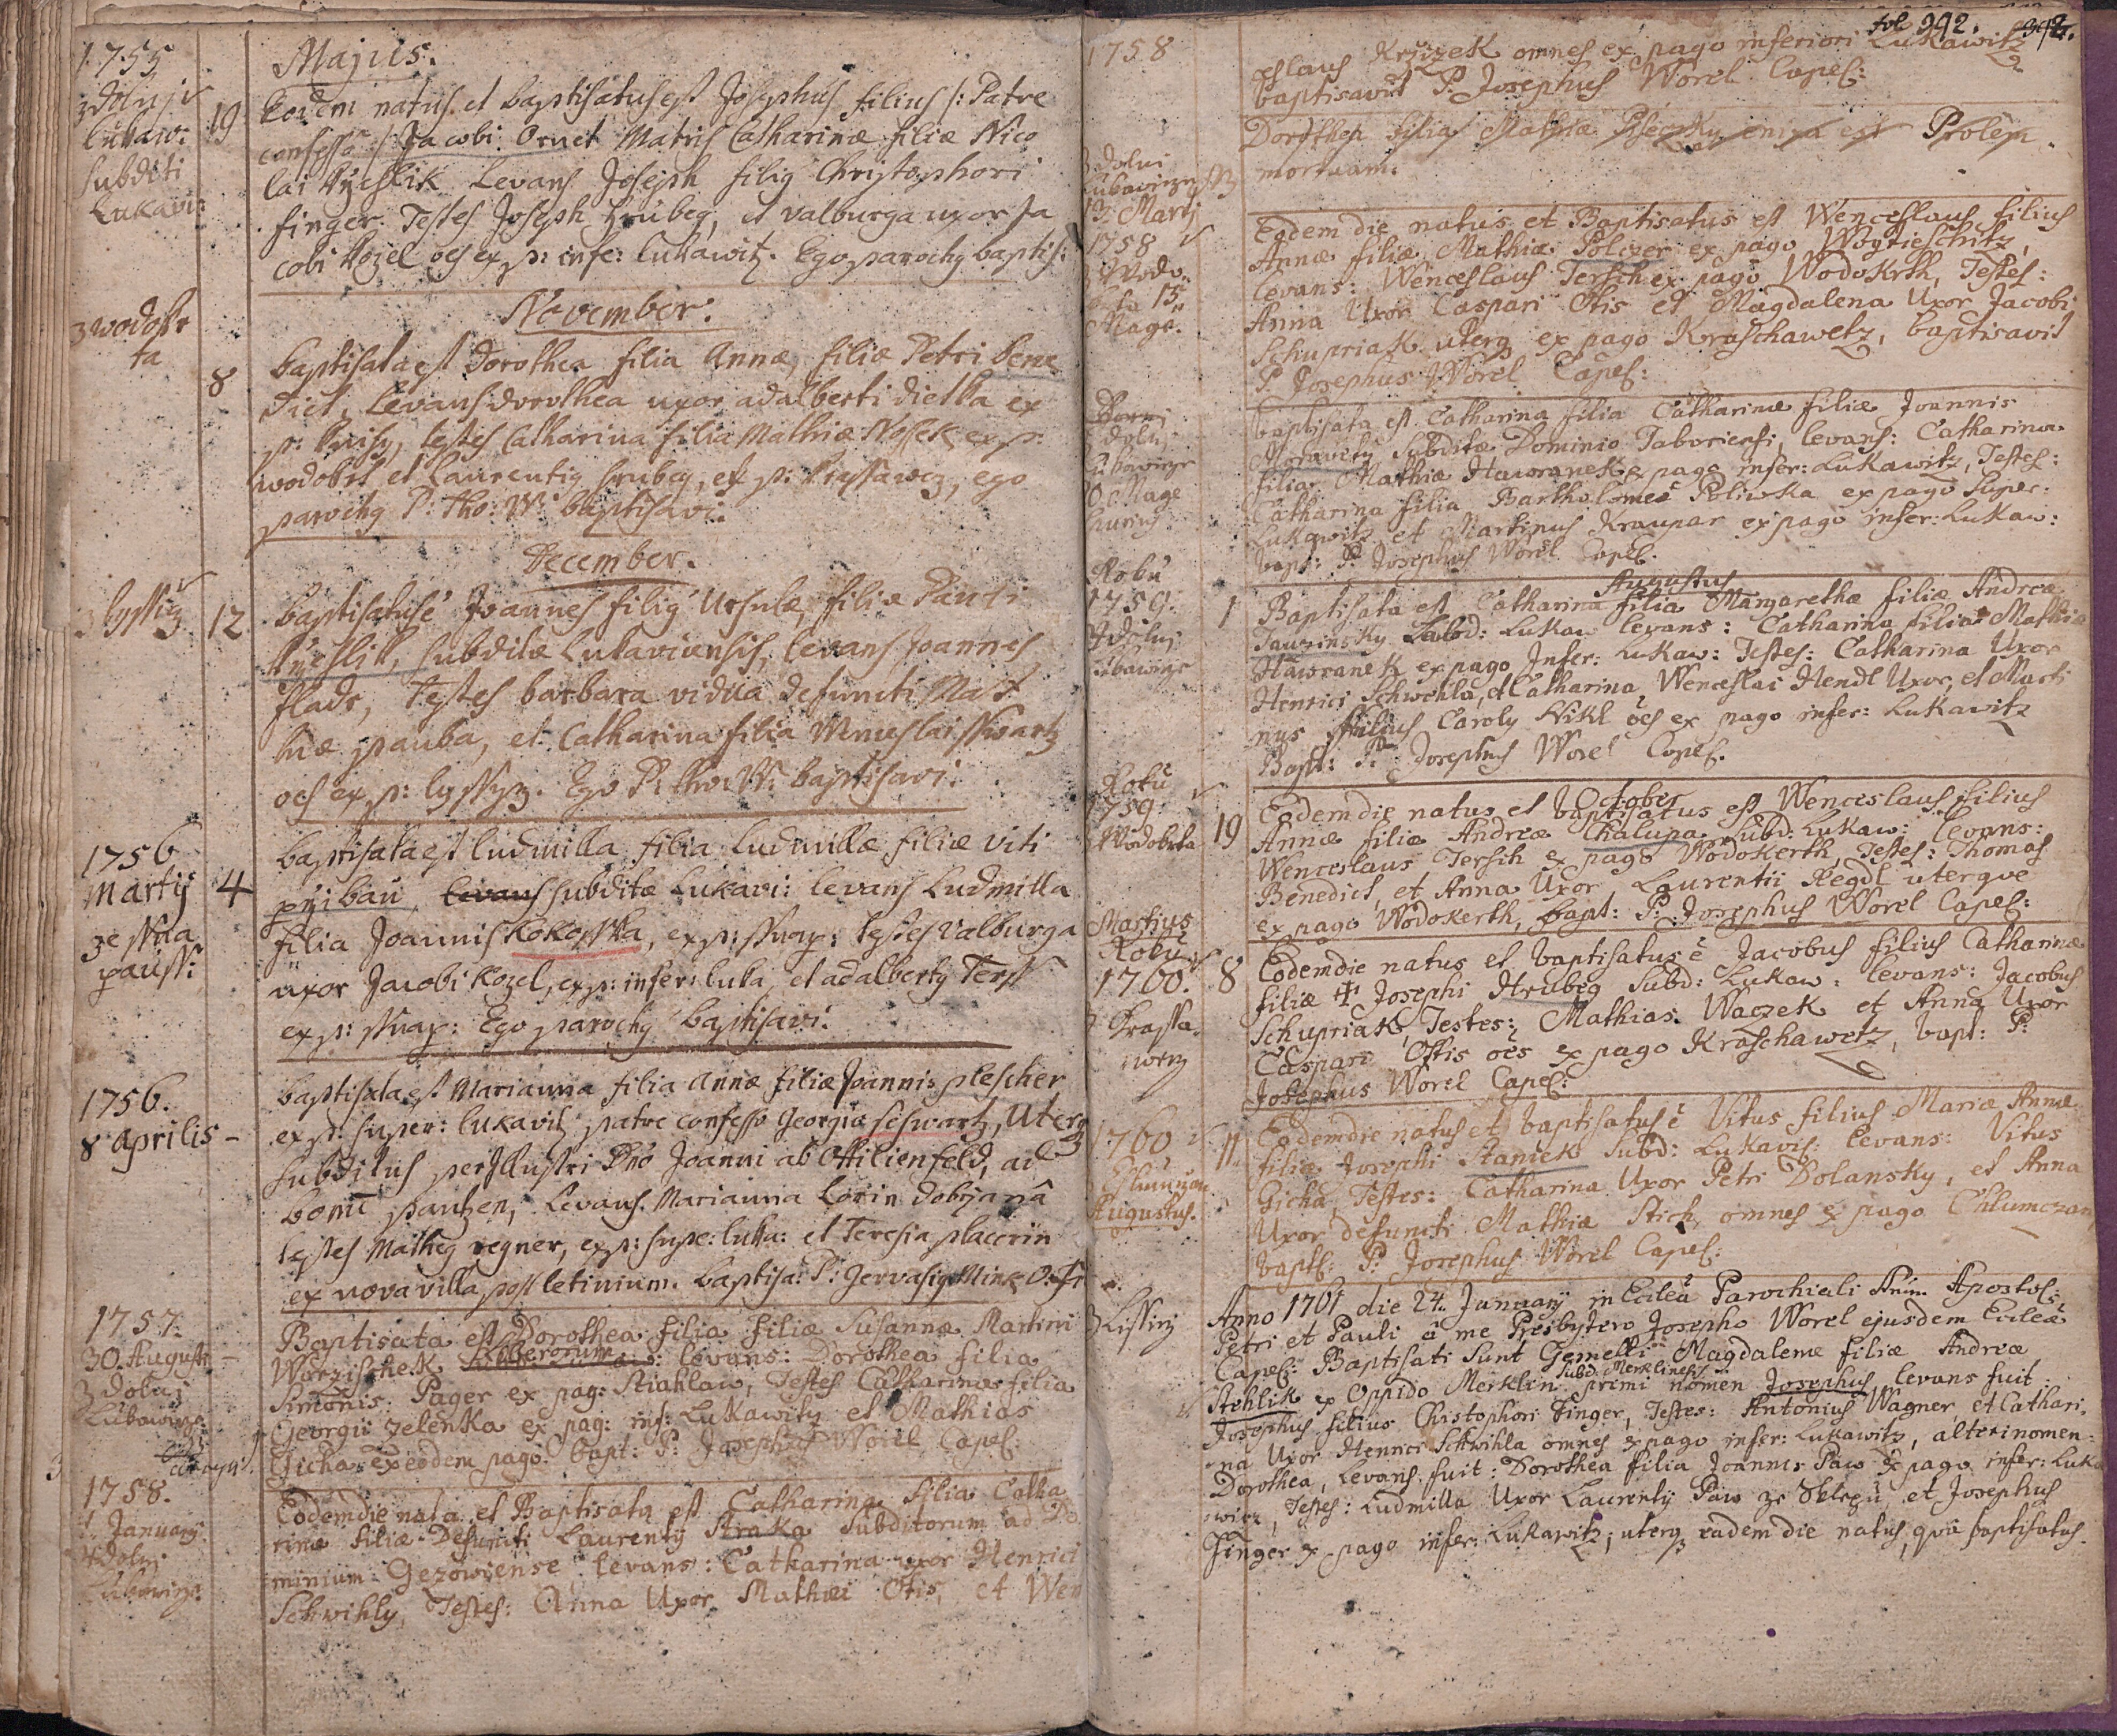 1755
zdolnji
Lukaw:
subditi
Lukawi:
19
Majus.
Eodem natus et baptisatus est Josephus filius /: Patre
confesso :/ Jacobi Ornet Matris Catharinæ filiæ Nico
lai Kneslik Levans Joseph filiq Christophori
finger Testes Joseph Hrubeg, et Valburga uxor Ja
cobi Kozel oes ex p: infe: Lukawitz. Ego parochq baptis:
z wodokr
ta
8
November.
baptisata est Dorothea filia Annæ, filiæ Petri bene
dict, Levans dorothea uxor adalberti dietka ex
p: testes Catharina filia Mathiæ Nossek ex p:
wodokrt et Laurentiq hrubeg, ex p: ego
parochq P: Tho: W: baptisavi.
12
December.
baptisatus e Joannes filiq Ursulæ, filiæ Pauli
Kneslik, subditæ Lukaviensis, levans Joannes
fladr, Testes barbara vidua defuncti Mat
hiæ pauba, et Catharina filia Wenceslai Swartz
oes ex p: lyssyz. Ego P: Tho: W: baptisavi.
1756
Martij
ze Sna
paus:
4
baptisata est ludmilla filia Ludmillæ filiæ Viti
pribau, levans subditæ Lukavi: levans Ludmilla
filia Joannis Kokosska, ex p: snap: testes Valburga
uxor Jacobi Kozel, ex p: infer: luka, et adalbertq Terss
ex p: snap: Ego parochq baptisavi.
1756.
8 Aprilis –
baptisata est Marianna filia Annæ filiæ Joannis plescher
ex p: super: lukavitz patre confesso Georgio Schwartz, Uterq
subditus perillustri Dno Joanni ab Ottilienfeld, ad
bonũ pautzen, Levans. Marianna Lorin dobrzanâ
testes Matheq regner, ex p: supe: luka: et Teresia placerin
ex nova villa post letinium. baptisa: P: Gervasiq Mink O: Fr
1757.
30. Augusti –
z dolnj
Lukawize
Baptisata est Dorothea filia filiæ Susannæ Martini
Worzischek Liberorum: levans: Dorothea filia
Simonis Pager ex pag: Stiahlaw, Testes Catharina filia
Georgii Zelenka ex pag: inf: Lukawitz et Mathias
Gicha ex eodem pago. bapt: P: Josephus Worel Capel:
1758.
1. January
z dolnj
Lukawize
Eodem die nata et Baptisata est Catharina filia Catha
rinæ filiæ Defuncti Laurentij Straka Subditorum ad Do
minium Gezowiense levans: Catharina uxor Henrici
Schwihly, Testes: Anna Uxor Mathæi Otis, et Wen
fol 392.
1758
ceslaus Krzizek omnes ex pago inferiori Lukawitz
baptisavit P: Josephus Worel Capel:
z dolni
Lukawizy
13: Martj
Dorothea filia Mathiæ enixa est Prolem
mortuam.
1758
z Wodo-
kta 13
Mage.
Eodem die natus et Baptisatus est Wenceslaus filius
Annæ filiæ Mathiæ Polczer ex pago Woytieschitz,
levans: Wenceslaus Tersch ex pago Wodokrth, Testes:
Anna Uxor Caspari Otis et Magdalena Uxor Jacobi
Schupriak uterq ex pago Kraschawetz, baptisavit
P. Josephus Worel Capel:
z dolnj
Lukawize
Baptisata est Catharina filia Catharinæ filiæ Joannis
Morawetz Subditæ Dominio Taboriensi, levans: Catharina
filia Mathiæ Hawranek ex pago infer: Lukawitz, Testes:
Catharina filia Bartholomei Poliwka ex pago super:
Lukawitz et Martinus Kraupar ex pago infer: Lukaw:
bapt: P: Josephus Worel Capel:
Roku
1759:
z dolnj
Lukawize
1
Augustus
Baptisata est Catharina filia Margarethæ filiæ Andreæ
Tauzinsky Subd: Lukaw levans: Catharina filia Mathiæ
Hawranek ex pago Infer: Lukaw: Testes: Catharina Uxor
Henrici Schwehla, et Catharina, Wenceslai Hendl Uxor, et Marti
nus filius Caroly Nikl oes ex pago infer: Lukawitz
Bapt: P: Josephus Worel Capel:
Roku
1759
z Wodokrta
19
October
Eodem die natus et baptisatus est Wenceslaus filius
Annæ filiæ Andreæ Chalupa Subd: Lukaw: levans:
Wenceslaus Tersch ex pago Wodokerth, Testes: Thomas
Benedict, et Anna Uxor Laurentii Regdl uterque
ex pago Wodokerth, bapt: P: Josephus Worel Capel:
Martius
Roku
1760.
z Krassa-
wetz
8
Eodem die natus et baptisatus ẽ Jacobus filius Catharinæ
filiæ ‡ Josephi Hrubeg Subd: Lukaw: levans: Jacobus
Schupriak, Testes: Mathias Waczek et Anna Uxor
Caspari Ottis oes ex pago Kraschawetz, bapt: P:
Josephus Worel Capel:
1760
z Chlumczan
Augustus.
11
Eodem die natus et baptisatus ẽ Vitus filius Mariæ Annæ
filiæ Josephi Staniek Subd: Lukavi: levans: Vitus
Gicha, Testes: Catharina Uxor Petri Dolansky, et Anna
Uxor defuncti Mathiæ Stich, omnes ex pago Chlumczan,
bapt: P: Josephus Worel Capel:
z Lissizj
Anno 1761 die 24. Januarij in Eccleâ Parochiali Stm. Apostol:
Petri et Pauli â me Presbytero Josepho Worel ejusdem Eccleæ
Capel: Baptisati Sunt Gemelli Magdalenæ filiæ Andreæ
Subd: Merklinensis
Stehlik ex Oppido Merklin primi nomen Josephus levans fuit
Josephus filius Christophori Finger, Testes: Antonius Wagner, et Cathari-
na Uxor Henrici Schwihla omnes ex pago infer: Lukawitz, alteri nomen
Dorothea, Levans fuit: Dorothea filia Joannis Paw ex pago infer: Luka
witz, Testes: Ludmilla Uxor Laurentij Paw ze Sklepu, et Josephus
Finger ex pago infer: Lukawitz; uterq eadem die natus, qua baptisatus.